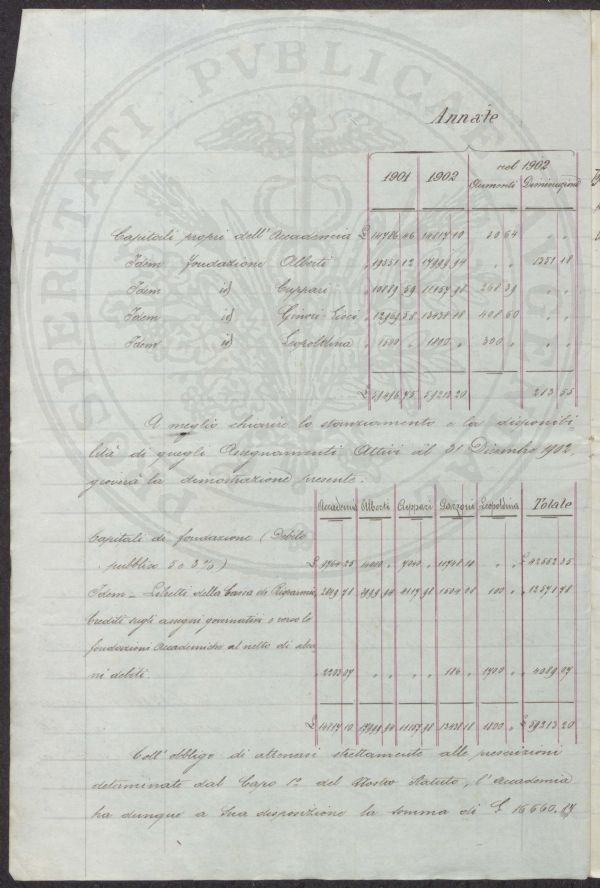 PROSPERITATI PVBLICAE AVGENDAE
Annate
1901 1902 nel 1902
Aumenti Diminuzioni
Capitali propri dell'Accademia £ 14786 46 14817 10 30 64 " "
Idem fondazione Alberti " 19351 12 17999 94 " " 1351 18
Idem id Cuppari " 10889 59 11157 98 268 39 " "
Idem id Ginori-Lisci " 12969 58 13438 18 468 60 " "
Idem id Leopoldina " 1500 " 1800 " 300 " " "
£ 59496 75 59213 20 283 55
A meglio chiarire lo stanziamento e la disponibi
lità di quegli Assegnamenti Attivi al 31 Dicembre 1902,
gioverà la dimostrazione presente.
Accademia Alberti Cuppari Leopoldina Totale
Capitali di fondazione (Debito
pubblico 5 e 3 %) £ 9764 25 7040 " 11748 10 " " £ 42552 35
Idem - Libretti della Cassa di Risparmio 2849 78 3999 94 4117 98 1504 08 100 " " 12571 78
Crediti sugli assegni governativi e verso le
fondazioni Accademiche al netto di alcu
ni debiti. 2203 07 " " " " 186 " 1700 " " 4089 07
£ 14817 10 17999 94 11157 98 13438 18 1800 " £ 59213 20
Coll'obbligo di attenersi strettamente alle prescrizioni
determinate dal Capo 1º del Nostro Statuto, l'Accademia
ha dunque a Sua disposizione la somma di £ 16660.87